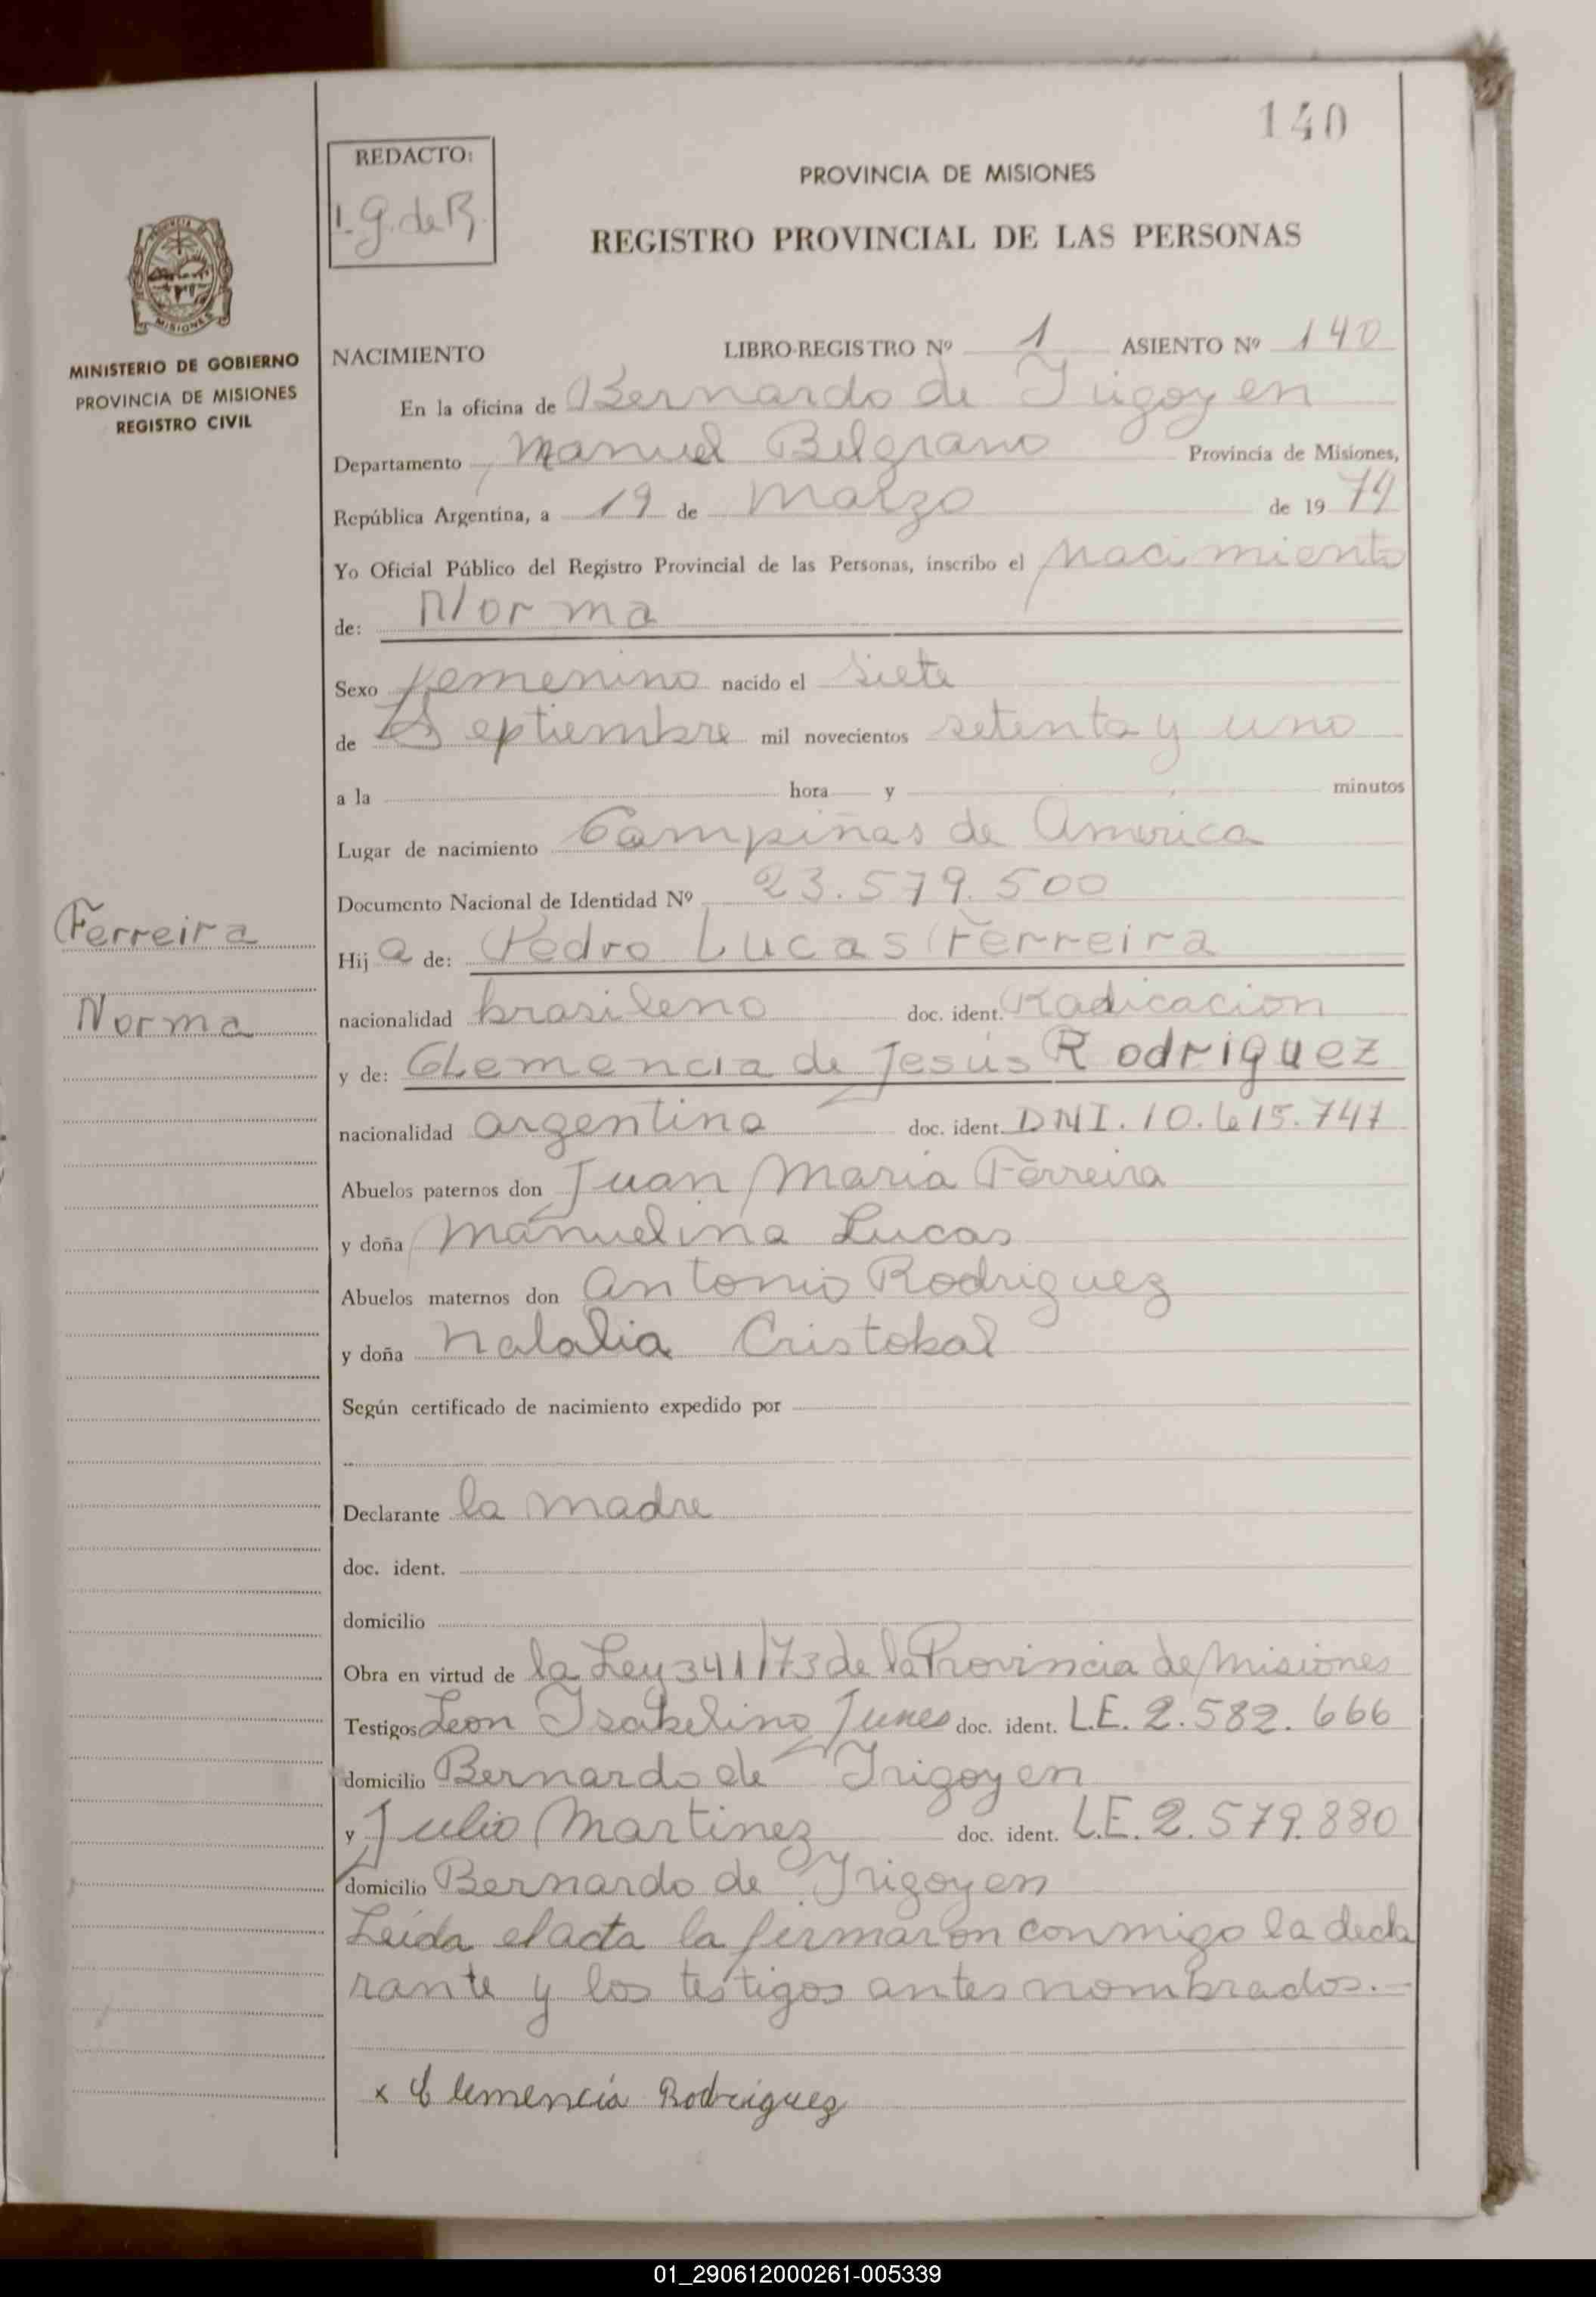 140
REDACTO:
I. G. de R.
PROVINCIA DE MISIONES
REGISTRO PROVINCIAL DE LAS PERSONAS
MISIONES
MINISTERIO DE GOBIERNO
PROVINCIA DE MISIONES
REGISTRO CIVIL
NACIMIENTO LIBRO-REGISTRO Nº 1 ASIENTO Nº 140
En la oficina de Bernardo de Irigoyen
Departamento Manuel Belgrano Provincia de Misiones,
República Argentina, a 19 de Marzo de 19 74
Yo Oficial Público del Registro Provincial de las Personas, inscribo el nacimiento
de: Norma
Sexo femenino nacido el siete
de Septiembre mil novecientos setenta y uno
a la hora y minutos
Lugar de nacimiento Campiñas de America
Documento Nacional de Identidad Nº 23.579.500
Ferreira
Norma
Hij a de: Pedro Lucas Ferreira
nacionalidad brasileno doc. ident. Radicacion
y de: Clemencia de Jesús Rodriguez
nacionalidad argentina doc. ident. DNI. 10.615.747
Abuelos paternos don Juan Maria Ferreira
y doña Manuelina Lucas
Abuelos maternos don Antonio Rodriguez
y doña Natalia Cristobal
Según certificado de nacimiento expedido por
Declarante la madre
doc. ident.
domicilio
Obra en virtud de la Ley 341/73 de la Provincia de Misiones
Testigos Leon Isabelino Junes doc. ident. L.E. 2.582.666
domicilio Bernardo de Irigoyen
y Julio Martinez doc. ident. L.E. 2.579.880
domicilio Bernardo de Irigoyen
Leída el acta la firmaron conmigo la decla
rante y los testigos antes nombrados.-
x Clemencia Rodriguez
01_290612000261-005339